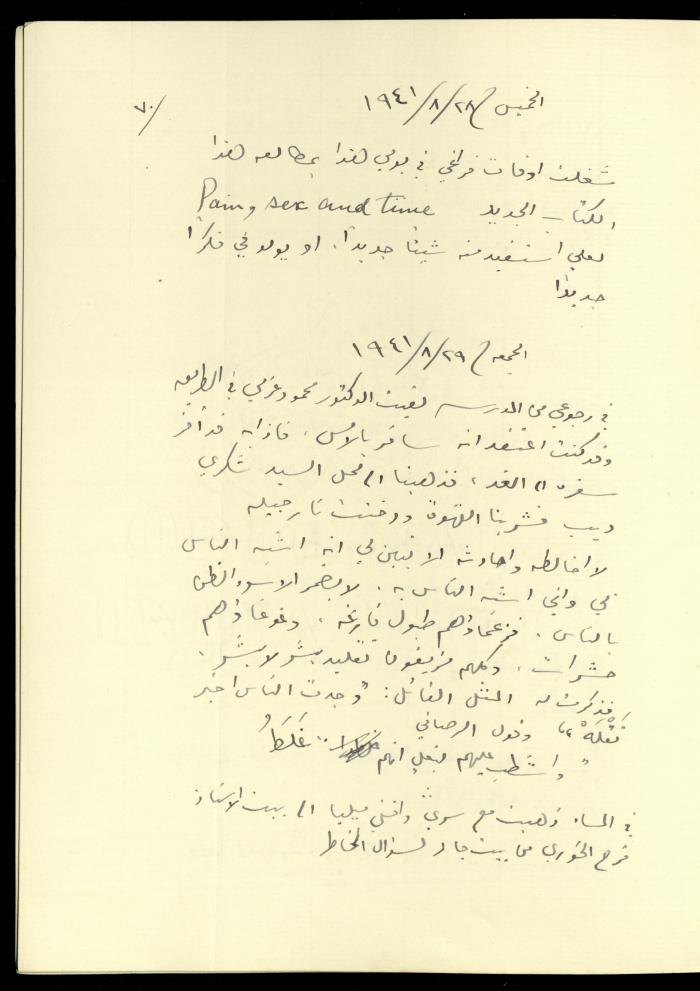 ٧٠/
الخميس ٢٨/٨/١٩٤١
شغلت اوقات فراغي في يومي هذا بمطالعه هذا
الكتاب الجديد Pain, sex and time
لعلي استفيد منه شيئاً جديداً. او يولد فيّ فكراً
جديداً
الجمعه ٢٩/٨/١٩٤١
في رجوعي من المدرسه لقيت الدكتور محمود عزمي في الطريق
وقد كنت اعتقد انه سافر بالامس، فاذا به قد أخر
سفره الى الغد، فذهبنا الى محل السيد شكري
ديب فشربنا القهوة ودخنت نارجيله
لا اخالطه واحادثه الا تبين لي انه اشبه الناس
بي واني اشبه الناس به. لا يضمر الا سوء الظن
بالناس. فزعماؤهم طبول فارغه، وغوغاؤهم
حشرات، وكلهم مزيفون تقليد بشر لا بشر.
فذكرت له المثل القائل: "وجدت الناس اخبر
تقله" وقول الرصافي
"واشطب عليهم فقل انهم غلط"
في المساء ذهبت مع سري وافتني ميليا الى بيت الاستاذ
فرح الخوري من بيت جالا لسؤال الخاطر